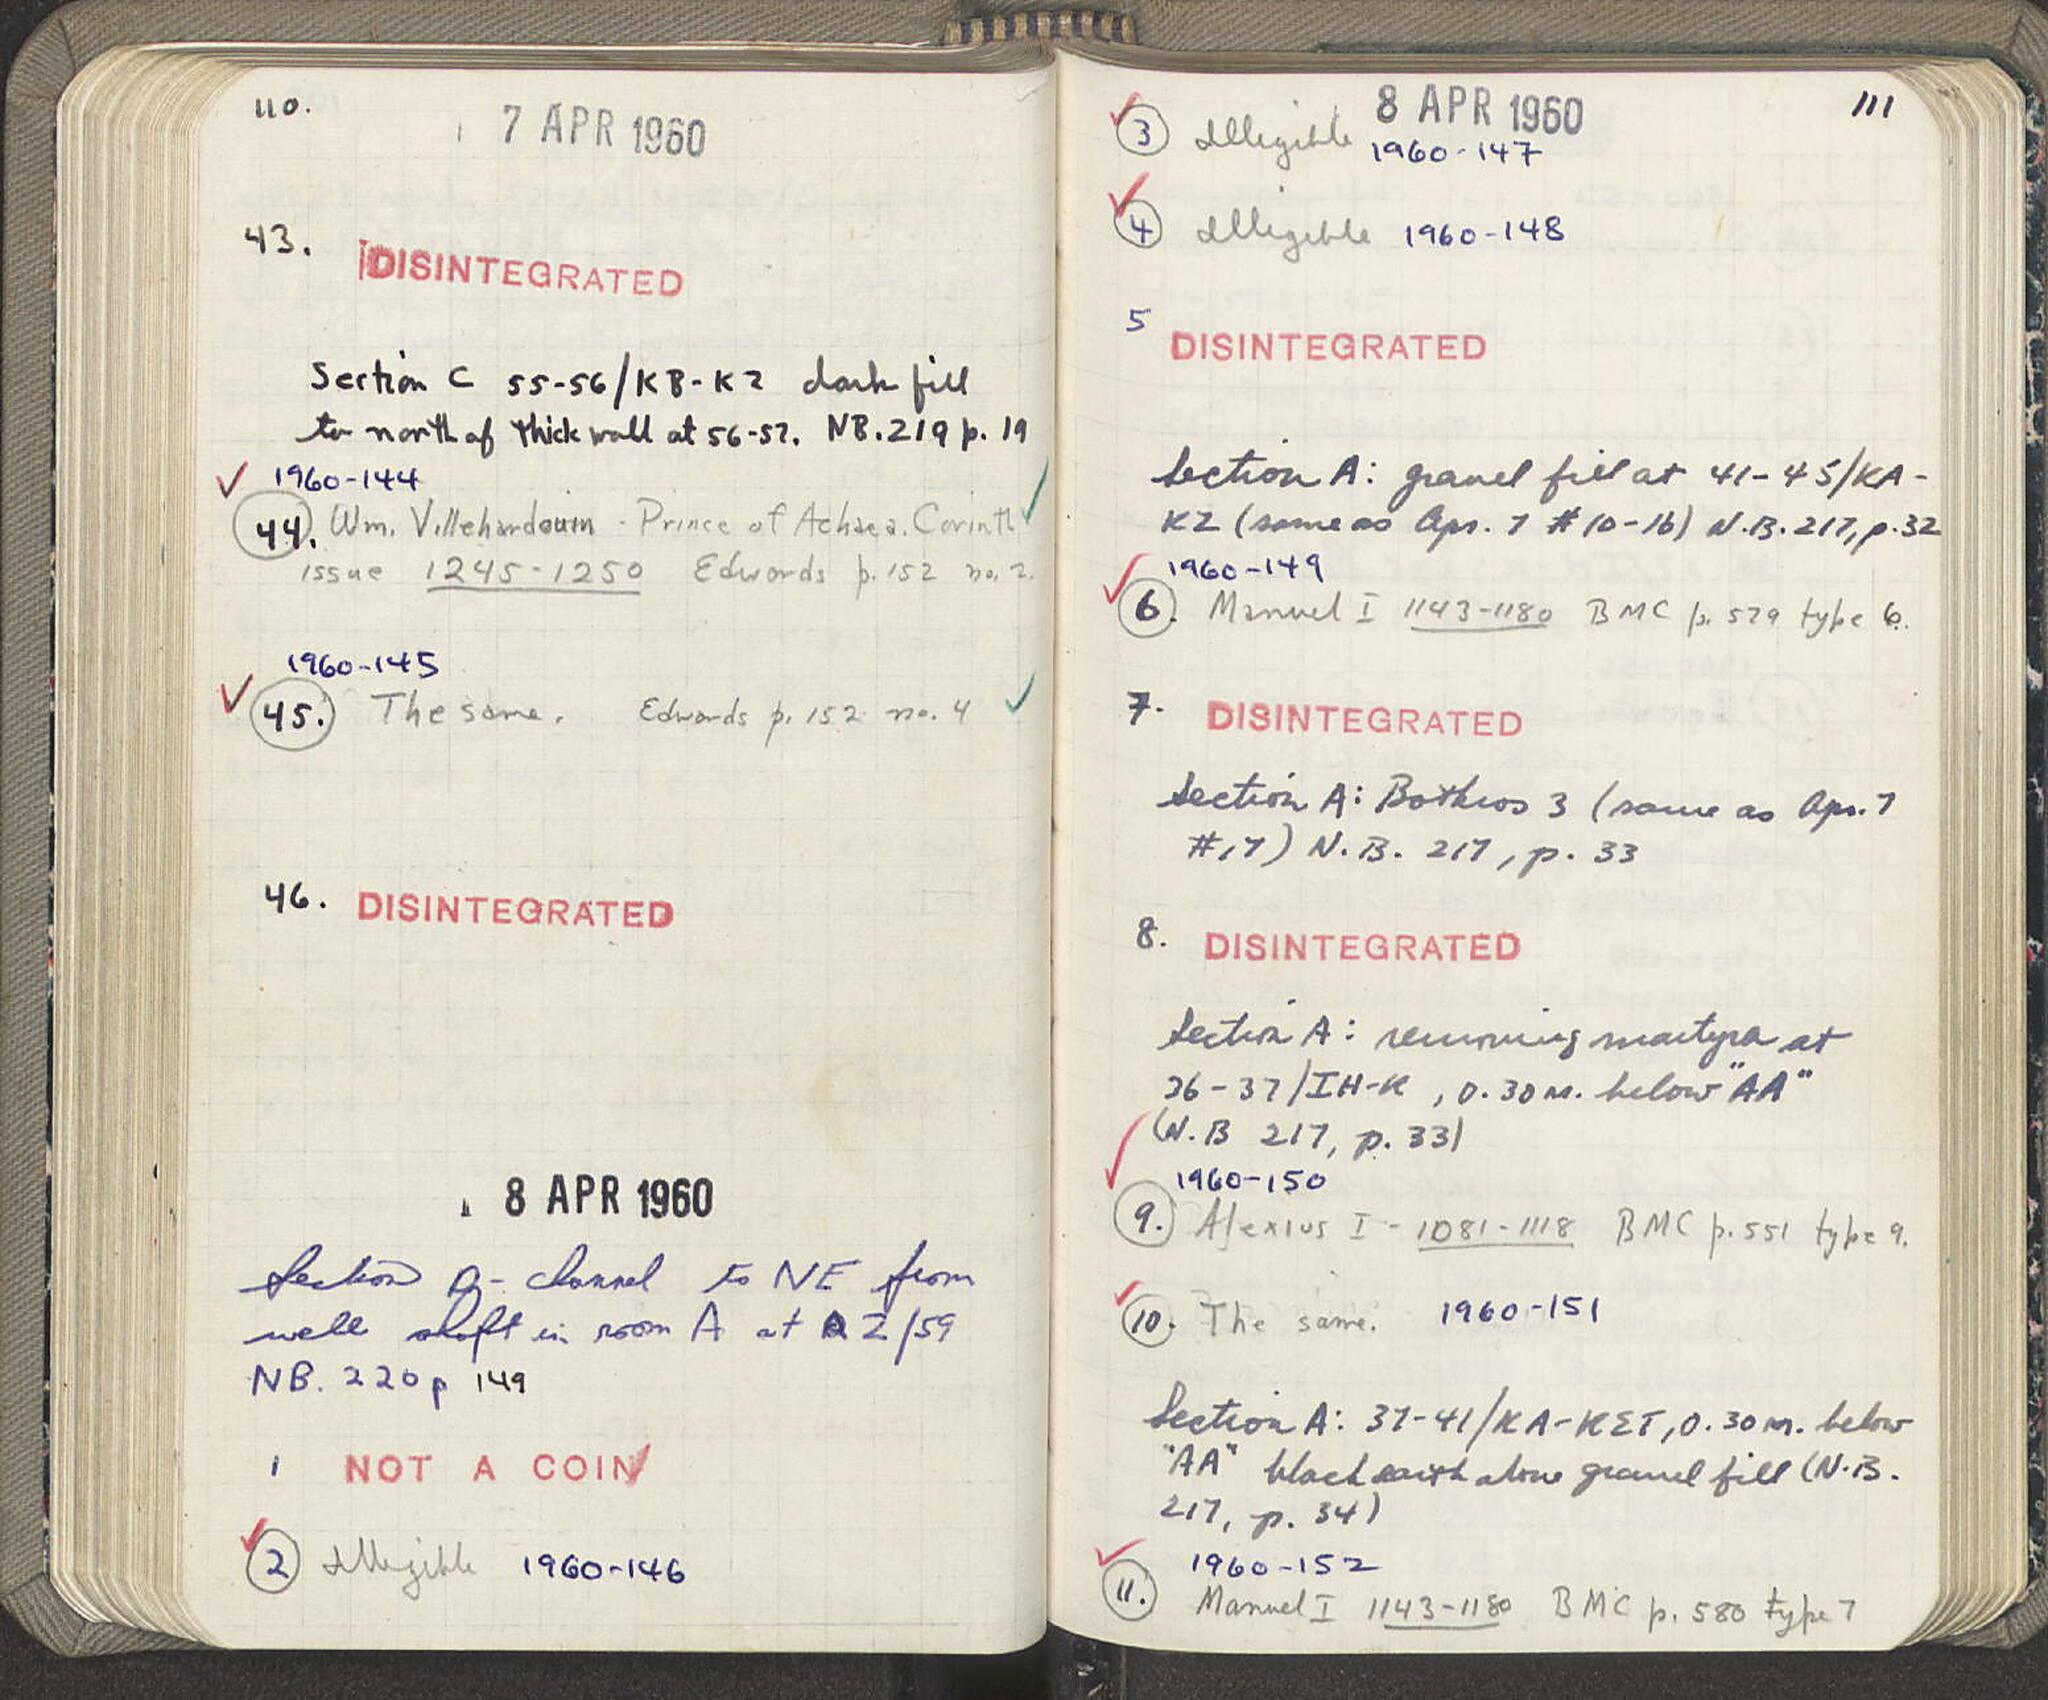 110.
7 APR 1960
43.
DISINTEGRATED
Section C 55-56/KB-KZ dark fill
to north of thick wall at 56-57. NB.219 p. 19
1960-144
44. Wm. Villehardouin - Prince of Achaea. Corinth
issue 1245-1250 Edwards p.152 no. 2.
1960-145
45. The same. Edwards p. 152 no. 4
46. DISINTEGRATED
8 APR 1960
Section channel to NE from
well shaft in room A at Z/59
NB. 220 p 149
1 NOT A COIN
2 Illegible 1960-146
8 APR 1960
111
3 Illegible 1960-147
4 Illegible 1960-148
5
DISINTEGRATED
Section A: gravel fill at 41-45/KA-
KZ (same as Apr. 7 #10-16) N.B. 217, p. 32
1960-149
6. Manuel I 1143-1180 BMC p. 579 type 6.
7. DISINTEGRATED
Section A: Bothros 3 (same as Apr. 7
#17) N.B. 217, p. 33
8. DISINTEGRATED
Section A: removing martyra at
36-37/IH-K, 0.30 m. below "AA"
(N.B 217, p. 33)
1960-150
9. Alexius I - 1081-1118 BMC p. 551 type 9.
10. The same. 1960-151
Section A: 37-41/KA-KΣT, 0.30 m. below
"AA" black earth above gravel fill (N.B.
217, p. 34)
1960-152
11. Manuel I 1143-1180 BMC p. 580 type 7